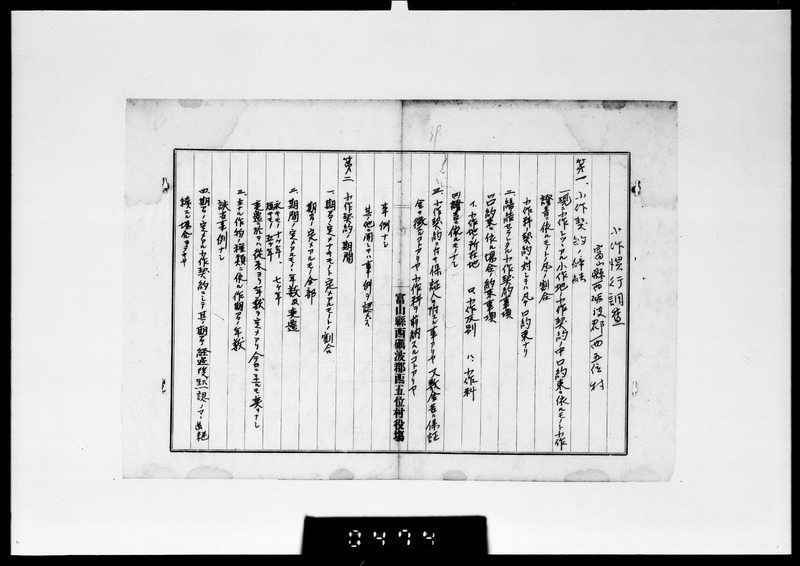 小作慣行調査
富山縣西砺波郡西五位村
第一、小作契約ノ締結
一、現ニ小作シツツアル小作地ノ小作契約ノ中口約束ニ依ルモノト小作
證書ニ依ルモノトノ凡ソノ割合
小作料契約ニ対シテハ凡テ口約束ナリ
二、締結セラルル小作契約事項
口口約束ニ依ル場合ノ約束事項
イ、小作地所在地 ロ、小作反別 ハ、小作料
四證書ニ依ルモノナシ
三、小作契約ニ際シテ保証人ヲ附スル事アリヤ又敷金若ハ保証
金ヲ徴スルコトアリヤ小作料ヲ前納スルコトアリヤ
事例ナシ
其他ニ関シテハ事例ヲ認メス
富山縣西礪波郡西五位村役塲
第二 小作契約ノ期間
一、期間ノ定メナキモノト定メアルモノトノ割合
期間ノ定メアルモノ全部
二、期間ノ定メアルモノノ年数及変遷
永キモノ 十ケ年 七ケ年
短キモノ 五ケ年
変遷ニ於テハ従来ヨリ年数ヲ定メアリ今日ニ至ルモ異リナシ
三、主ナル作物ノ種類ニ依ル作期間ノ年数
該当事例ナシ
四、期間ノ定メアル小作契約ニシテ其ノ期間ヲ経過後黙認ノママ継
続スル場合多キヤ